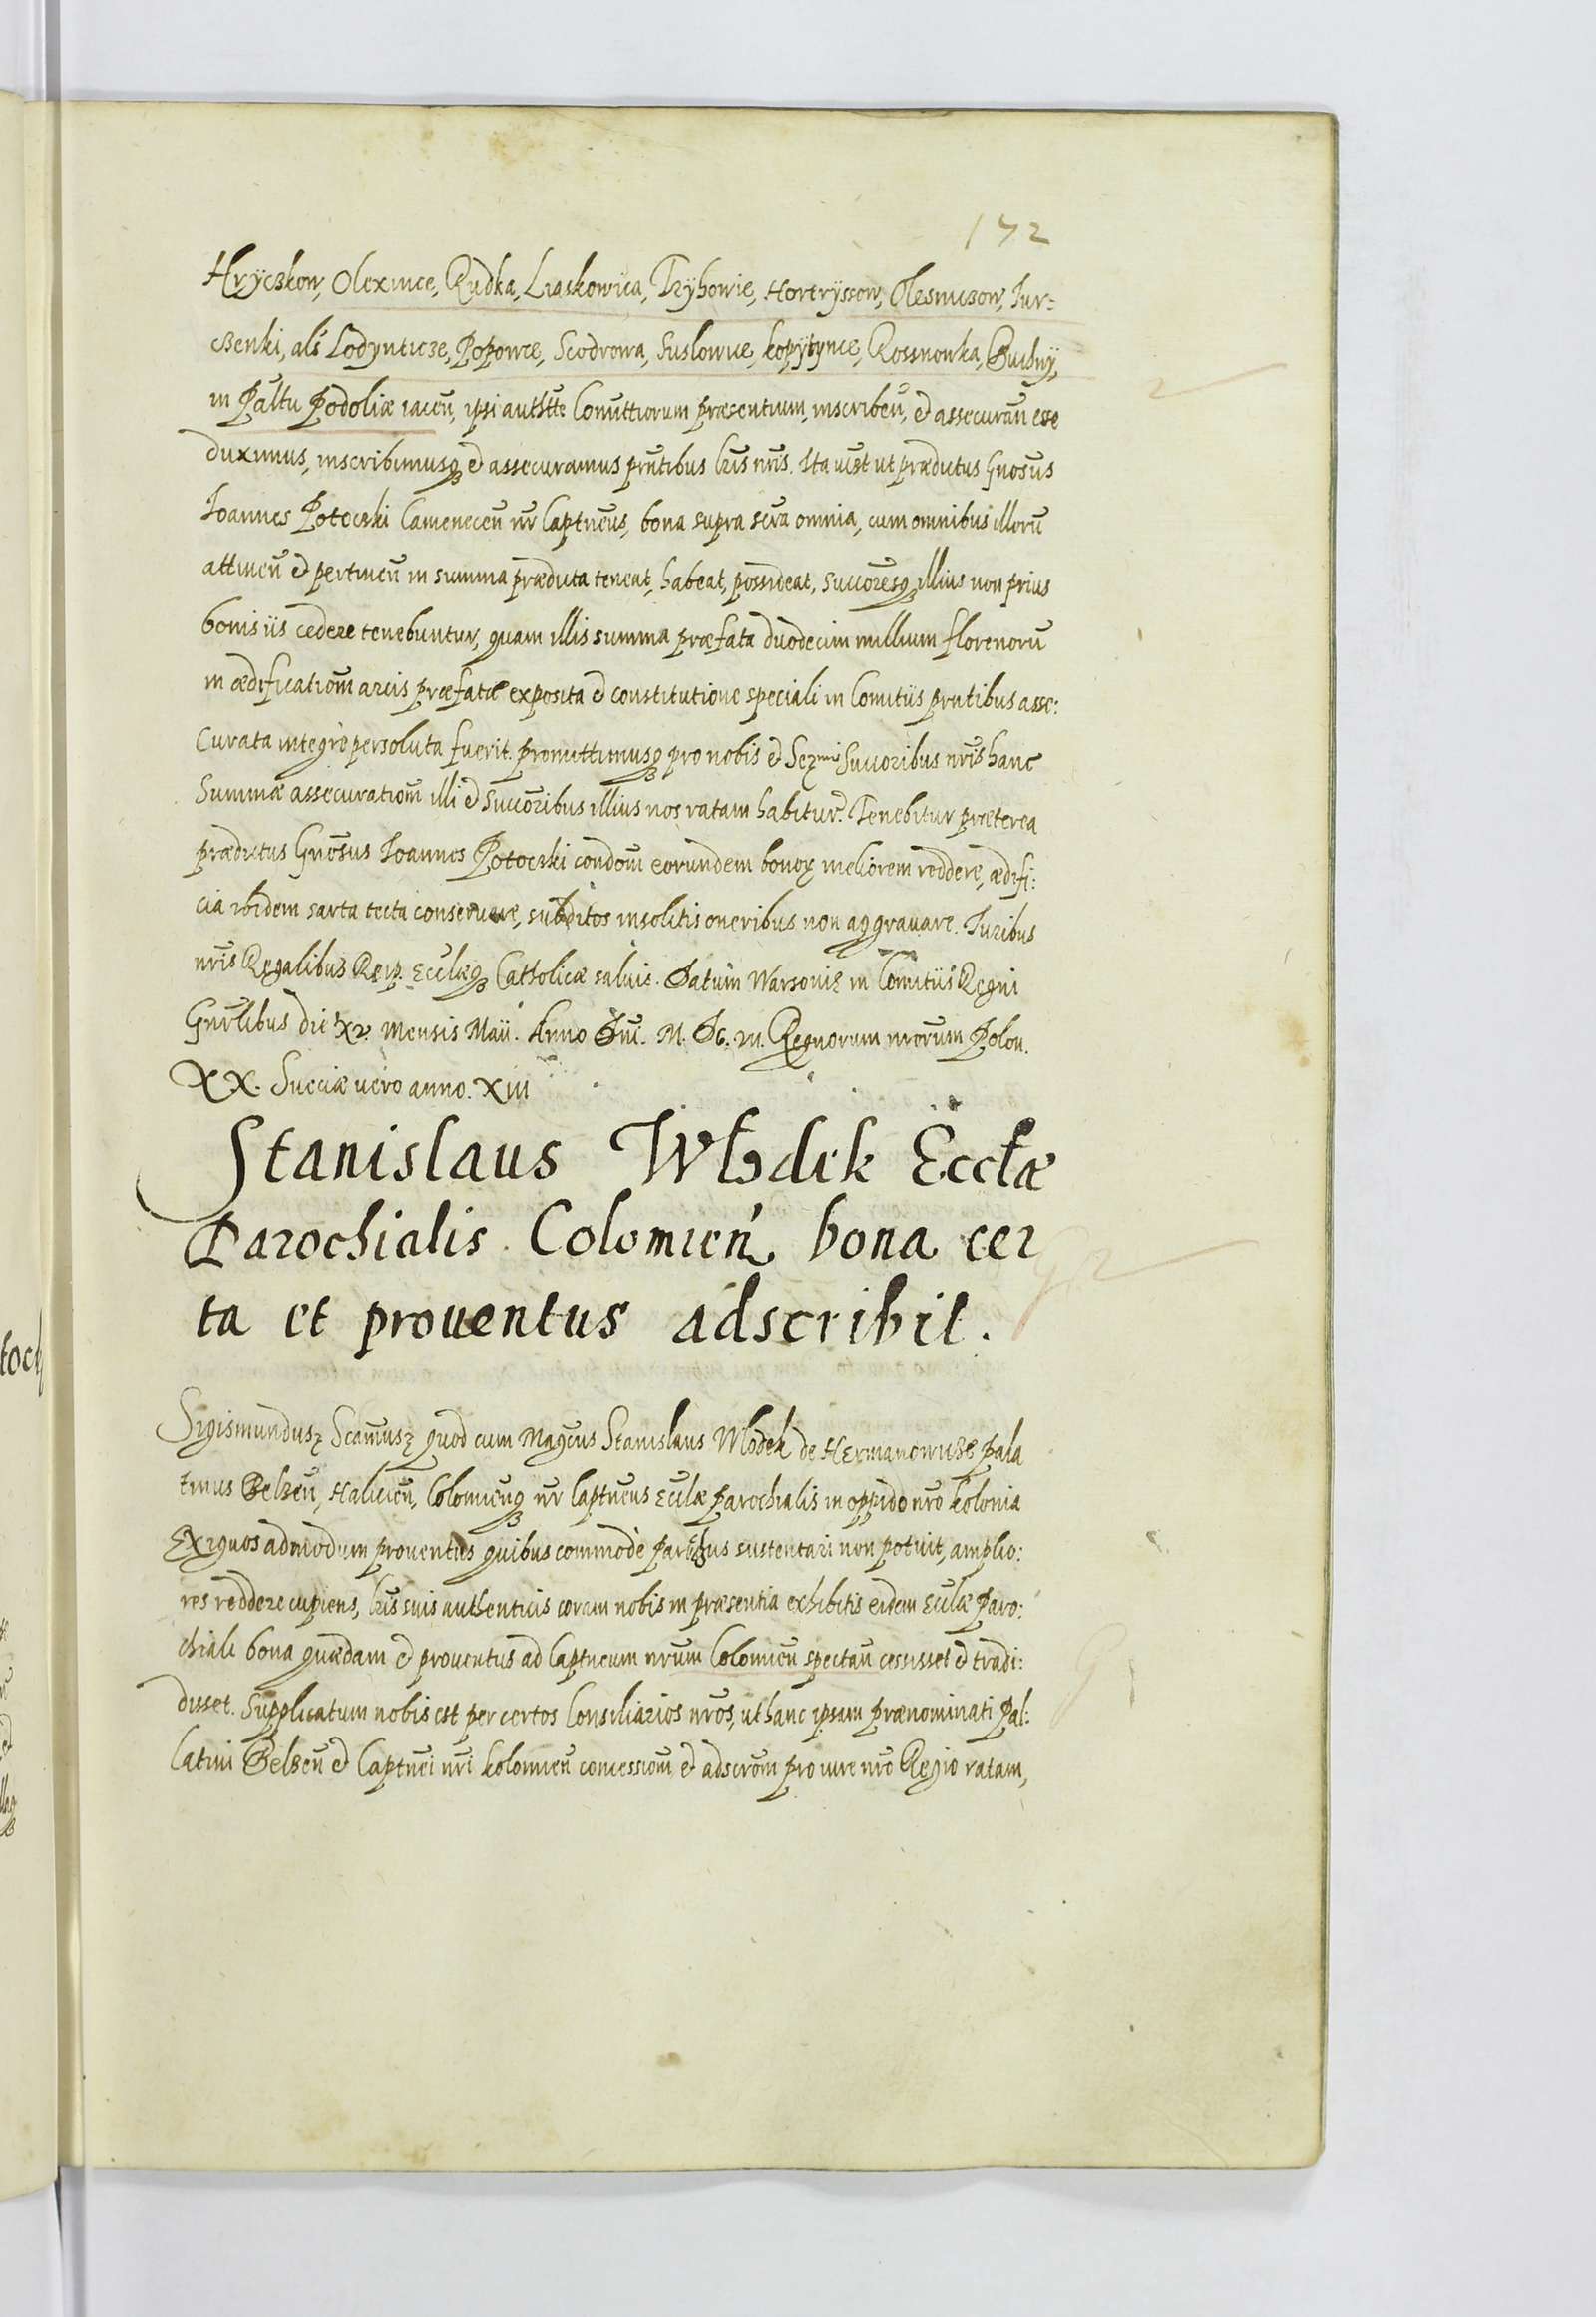 172
Hryczkow, Olexince, Rudka, Liaskowica, Tryhowie, Hortryssow, Olesniczow, Iur=
czenki, als Lodynticze, Popowce, Scodrowa, Suslowce, kopytynce, Rossnowka, Buchny,
in Paltu Podoliæ iaceñ, ipsi authtte Conuttiorum præsentium, inscribeñ, et assecurañ esse
duximus, inscribimusq et assecuramus prntibus lris nris. Ita uist ut prædictus Gnosus
Ioannes Potocski Cameneceñ nr Captneus, bona supra scra omnia, cum omnibus illorū
attineñ et pertineñ in summa prædicta teneat, habeat, possideat, succoresq illius non prius
bonis iis cedere tenebuntur, quam illis summa præfata duodecim millium florenorū
in ædificationm arcis præfatæ exposita et constitutione speciali in Comitiis prntibus asse:
curata integrè persoluta fuerit. Promittimusq pro nobis et Sermis Succoribus nris hanc
Summæ assecurationm illi et Succoribus illius nos ratam habitur. Tenebitur præterea
prædictus Gnosus Ioannes Potocski condom eorundem bonor meliorem reddere, ædifi:
cia ibidem sarta tecta conseruare, subditos insolitis oneribus non aggrauare. Iuribus
nris Regalibus Reip. Ecclæq Catholicæ saluis. Datum Warsouiæ in Comitiis Regni
Gnrlibus die XV. Mensis Maii. Anno Dni. M. DC. VII. Regnorum nrorum Polon.
XX. Sueciæ uero anno. XIII
Stanislaus Wlodek Ecclæ
Parochialis Colomień bona cer
ta et prouentus adscribit.
Sigismundus Scamus quod cum Magcus Stanislaus Wlodek de Hermanowicze Pala
tinus Belzeñ, Halicieñ, Colomieñq nr Captneus Ecclæ Parochialis in oppido nro Kolonia
Exiguos admodum prouentus quibus commodè Parochus sustentari non potuit, amplio:
res reddere cupiens, lris suis authenticis coram nobis in præsentia exhibitis eidem Ecclæ Paro:
chiali bona quædam et prouentus ad Captneum nrum Colomieñ spectañ cessisset et tradi:
disset. Supplicatum nobis est per certos Consiliarios nros, ut hanc ipsam prænominati Pal:
latini Belzeñ et Captnei nri Kolomieñ concessiom et adscrom pro iure nro Regio ratam,